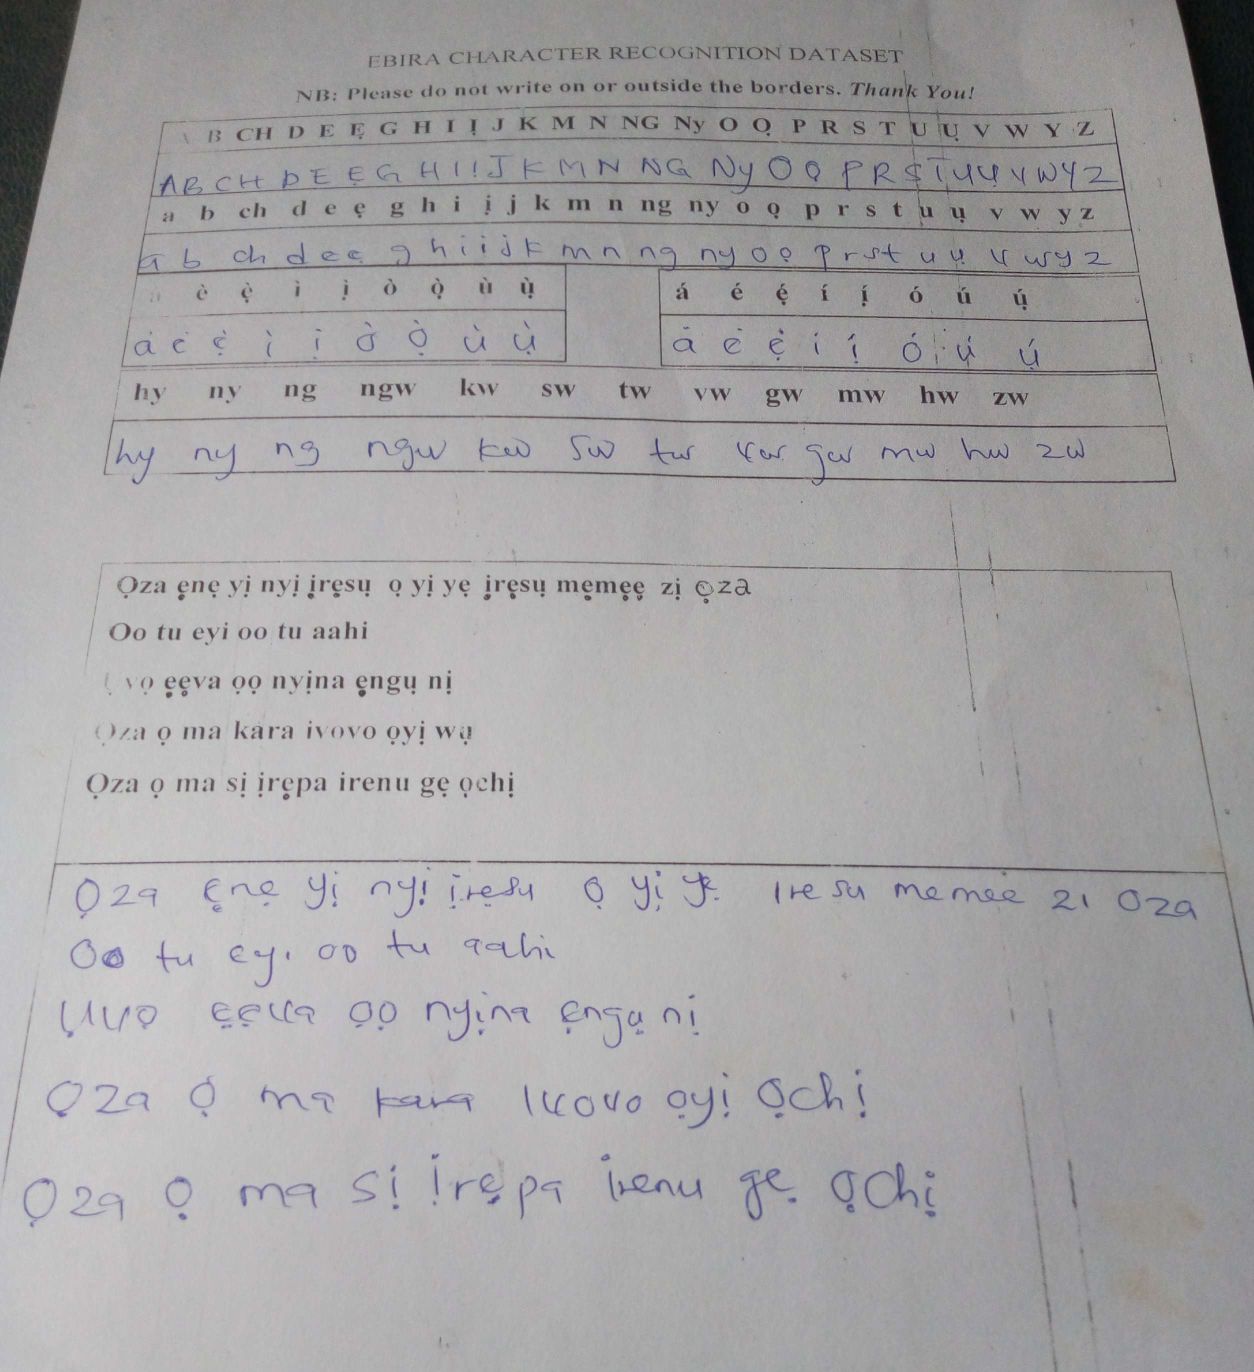 EBIRA CHARACTER RECOGNITION DATASET
NB: Please do not write on or outside the borders. Thank You!
A B CH D E Ẹ G H I Ị J K M N NG Ny O Ọ P R S T U Ụ V W Y Z
A B C H D E Ẹ G H I Ị J K M N NG Ny O Ọ P R S T U Ụ V W Y Z
a b ch d e ẹ g h i ị j k m n ng ny o ọ p r s t u ụ v w y z
a b ch d e ẹ g h i i j k m n ng ny o ọ p r s t u ụ v w y z
è ẹ̀ ì ị̀ ò ọ̀ ù ụ̀ á é ẹ́ í ị́ ó ú ụ́
hy ny ng ngw kw sw tw vw gw mw hw zw
hy ny ng ngw kw sw tw vw gw mw hw zw
Ọza ẹnẹ yị nyị ịrẹsụ ọ yị yẹ ịrẹsụ mẹmẹẹ zị ọza
Oo tu eyi oo tu aahi
vọ ẹẹva ọọ nyịna ẹngụ nị
Ọza ọ ma kara ivovo ọyị wạ
Ọza ọ ma sị ịrẹpa irenu gẹ ọchị
Ọza ẹnẹ yị nyị ịrẹsu ọ yị yẹ Iresu memee zi Oza
Oo tu eyi oo tu aahi
Ụvọ ẹẹva ọọ nyịna ẹngụ nị
Ọza ọ ma kara Ivovo ọyị Ọchị
Ọza Ọ ma sị Ịrẹpa irenu gẹ ọchị